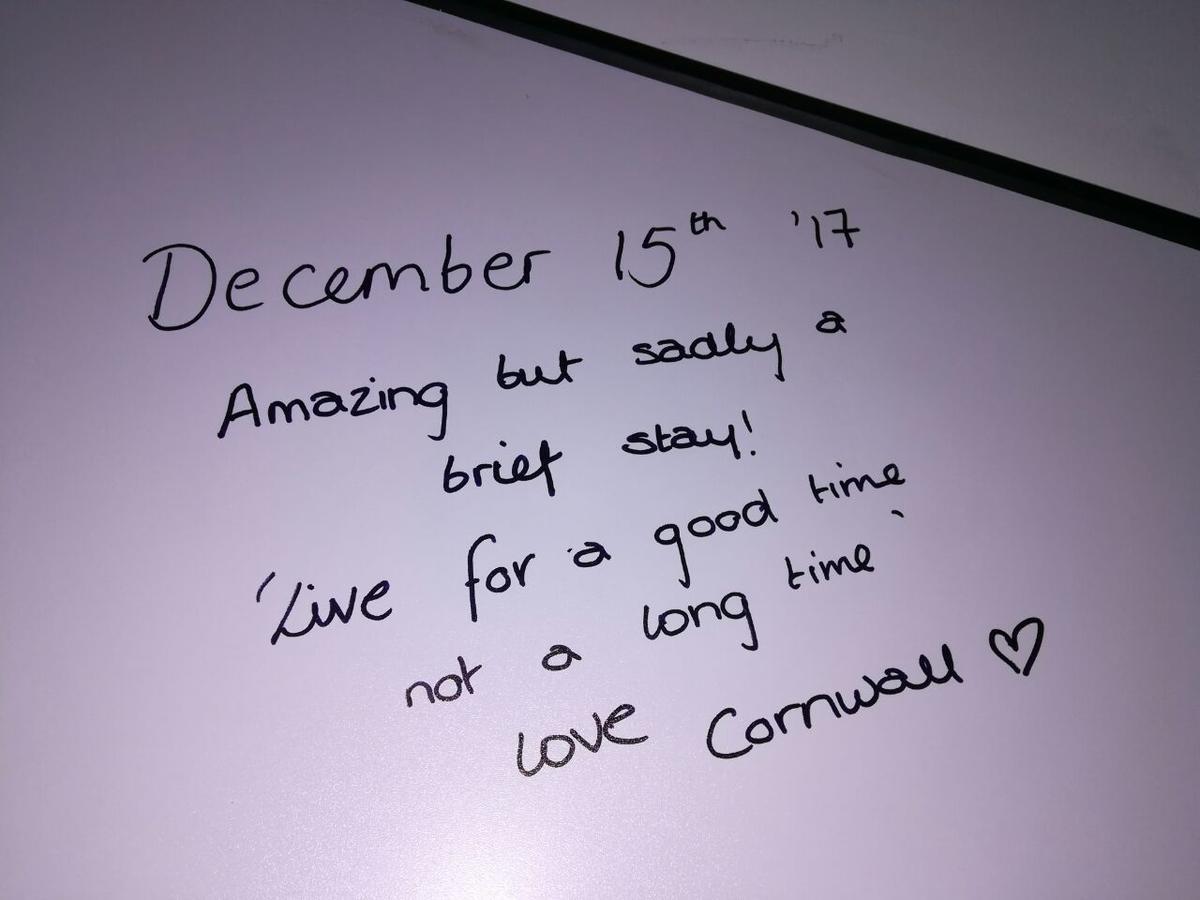 December 15th '17
Amazing but sadly a
brief stay!
'Live for a good time
not a long time'
Love Cornwall ♡